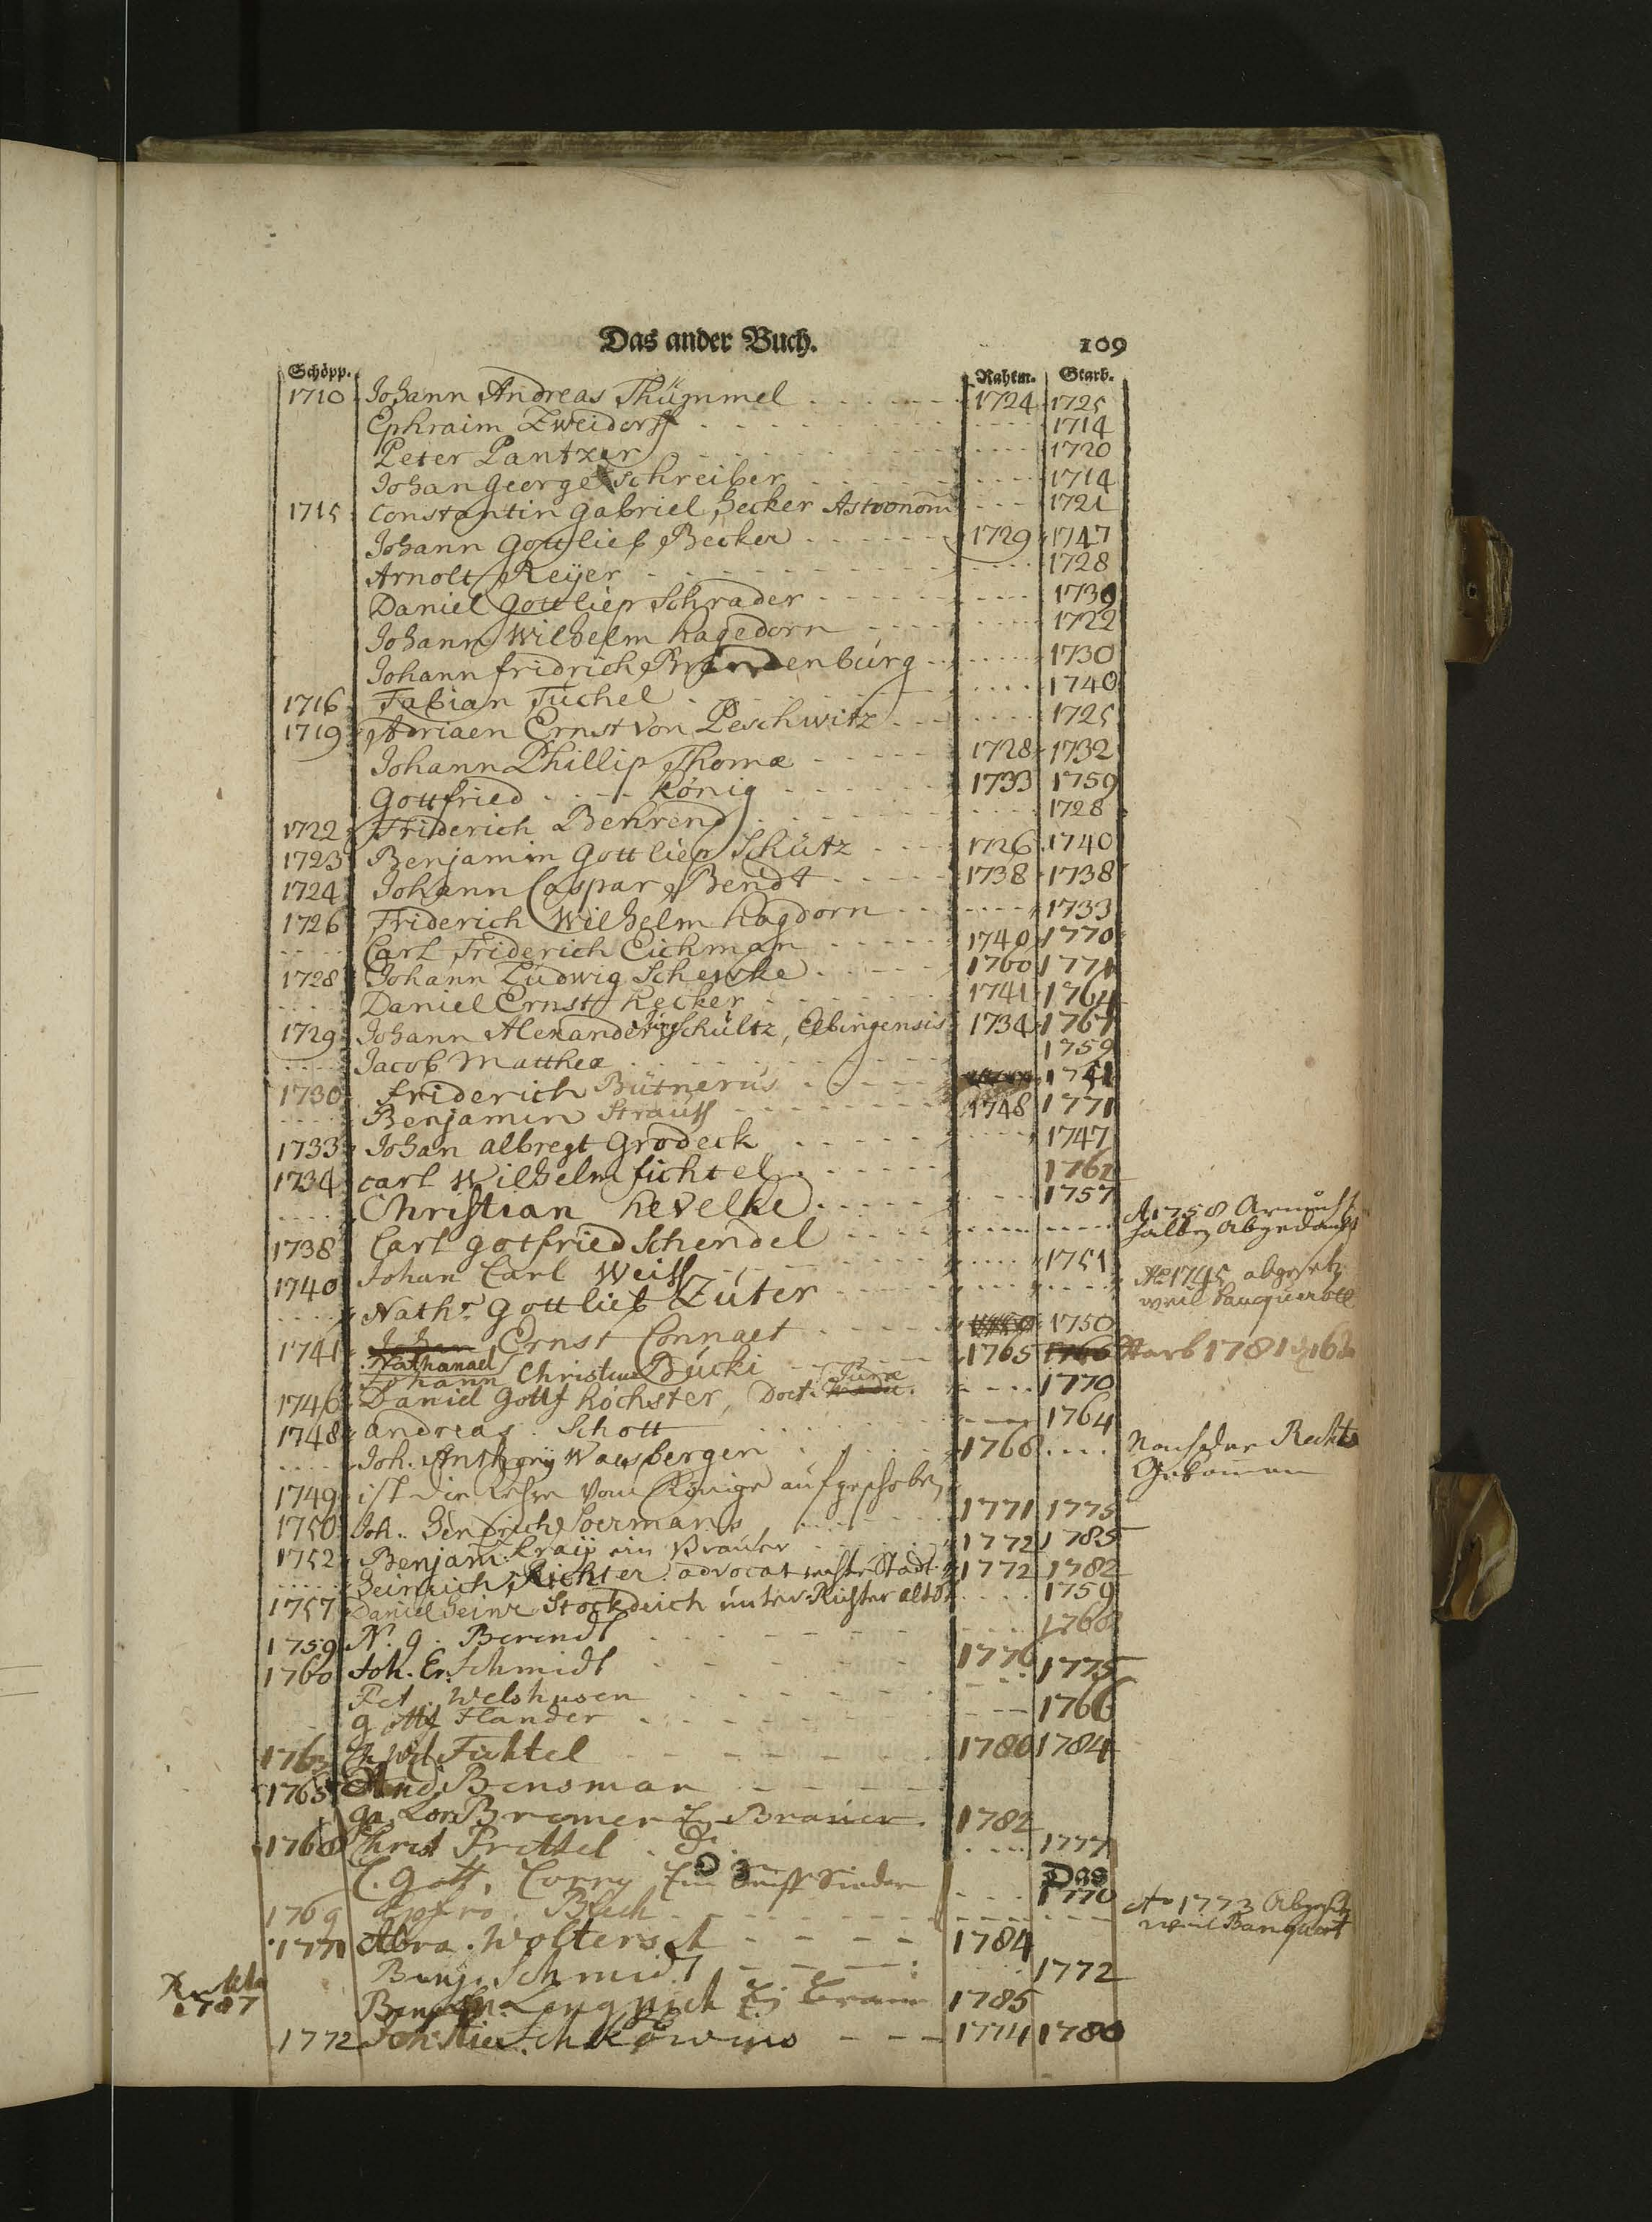 Das ander Buch. 109
Schöpp. Rahtm. Starb.
1710 Johann Andreas Thümmel 1724 1725
Ephraim Zweidorff 1714
Peter Pantzer 1720
Johan George Schreiber 1714
1715 Constantin Gabriel Hecker Astronom 1721
Johann Gottlieb Becker 1729 1747
Arnolt Reÿer 1728
Daniel Gottliep Schrader 1730
Johann Wilhelm hagedorn 1722
Johann fridrich Brandenburg 1730
1716 Fabian Tuchel 1740
1719 Adriaen Ernst von Peschwitz 1725
Johann Phillip Thomæ 1728 1732
Gottfried König 1733 1759
1722 Friderich Behrend 1728
1723 Benjamin Gottliep Schütz 1726 1740
1724 Johann Caspar Bendt 1738 1738
1726 Friderich Wilhelm hagdorn 1733
Carl Friderich Eichman 1740 1770
1728 Johann Ludwig Schewke 1760 1771
Daniel Ernst hecker 1741 1764
1729 Johann Alexander Schultz, Elbingensis 1734 1767
Jacob Mattheæ 1759
1730 friderich Bütnerus 1741
Benjamin Strauss 1748 1771
1733 Johan albregt Grodeck 1747
1734 carl Wilhelm fichtel 1762
Christian hevelke 1757
1738 Carl gotfried Schendel A 1758 Armuht
halben Abgedankt
1740 Johan Carl Weiss 1751
Nath. Gottlieb Zuter Ao 1745 abgesetz
weil banquerott
1741 Johan Ernst Connaet 1750
Nathanael
Johann Christian Bücki 1765 1766 starb 1781
1746 Daniel Gottf höchster, Doct. Juræ 1770
1748 andreas Schott 1764
Joh. Anthony Waesbergen 1768 Nach der Rechts
Gekommen
1749 ist die Kühre vom Könige aufgeschoben
1750 Joh. Hendrich Soermans 1771 1775
1752 Benjam. Kraÿ ein Brauer 1772 1785
Heinrich Richter advocat rechte Stadt 1772 1782
1757 Daniel Heinr Stockdeich unter Richter altst 1759
1759 N. g. Berendt 1768
1760 Joh. Er. Schmidt 1776 1775
Pet. Welshusen
gottf Flander 1766
Wil Fichtel 1780 1784
1765 And Bensman
Ga. Lor. Bremer E. Brauer 1782
1768 Christ Frittel 1777
C. Gott. Corny Ein Seiff Sieder Das
1770
1769 Blech Ao 1773 Abgesetz
weil Banquert
1771 Abra. Woltersdt 1784
Benj. Schmidt 1772
Rechts
1787 Lengnich 1785
1772 1774 1780